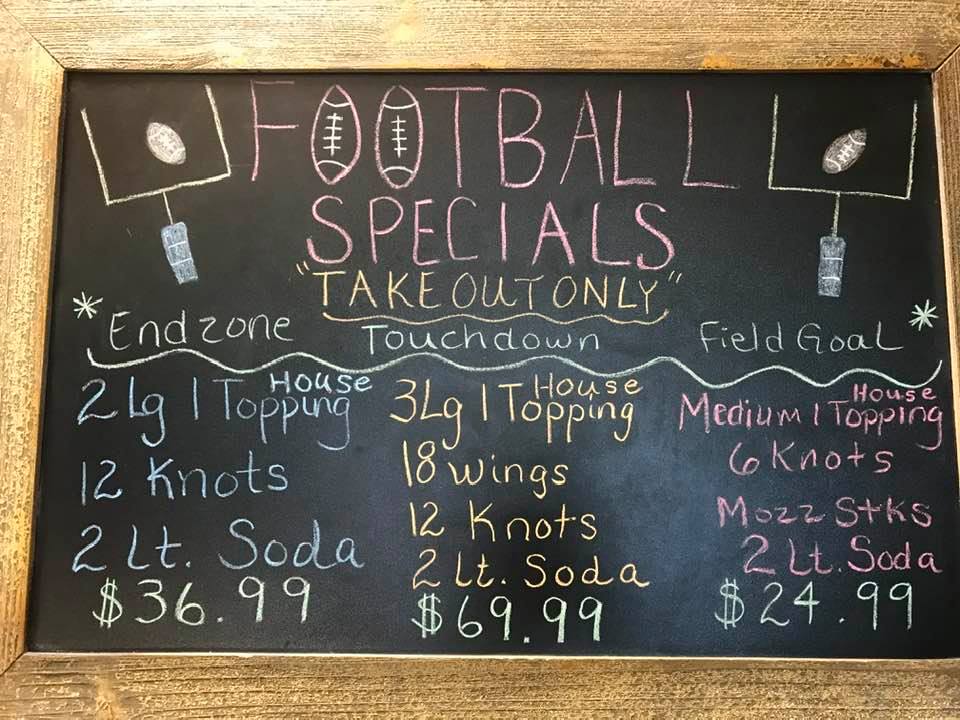 FOOTBALL
SPECIALS
"TAKE OUT ONLY"
* Endzone
2 Lg 1 House Topping
12 Knots
2 Lt. Soda
$36.99
Touchdown
3 Lg 1 House Topping
18 Wings
12 Knots
2 Lt. Soda
$69.99
Field Goal *
Medium 1 House Topping
6 Knots
Mozz Stks
2 Lt. Soda
$24.99